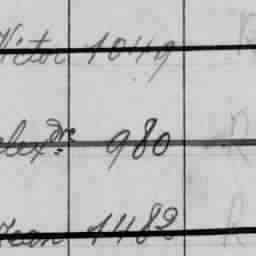 Victor 1049
Alexdre 980
Jean 1482